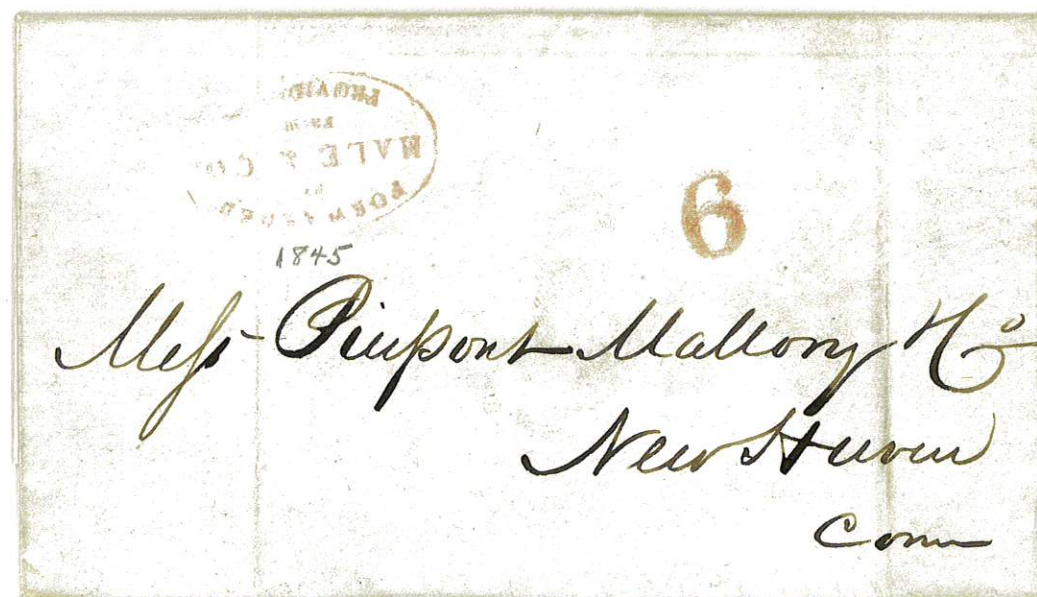 FORWARDED
BY
HALE & Co
FROM
6
1845
Mess Pierpont Mallory & Co
New Haven
Conn